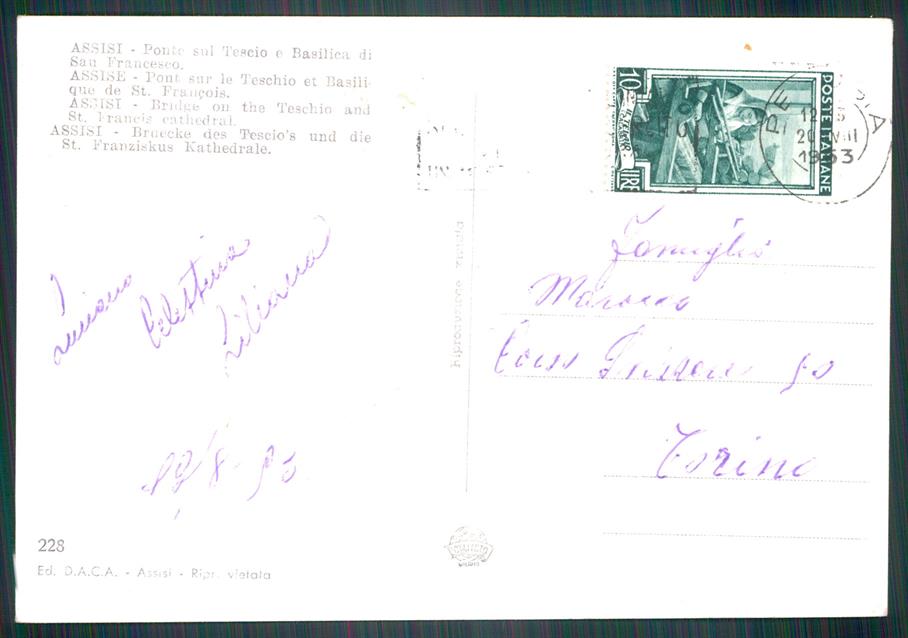 ASSISI - Ponte sul Tescio e Basilica di
San Francesco.
ASSISE - Pont sur le Teschio et Basili-
que de St. François.
ASSISI - Bridge on the Teschio and
St. Francis cathedral.
ASSISI - Bruecke des Tescio's und die
St. Franziskus Kathedrale.
10
LIRE
POSTE ITALIANE
1953
Luciano
Celestina
Liliana
19/8-53
Famiglia
Corso
Torino
Riproduzione vietata
228
Ed. D.A.C.A. - Assisi - Ripr. vietata